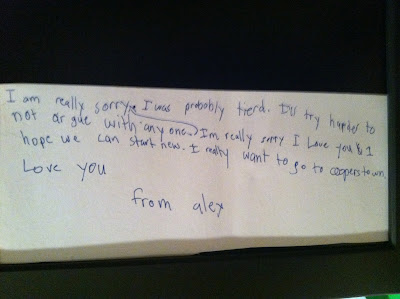 I am really sorry. I was probably tierd. I'll try harder to
not argue with any one. I'm really sorry I Love you & I
hope we can start new. I really want to go to cooperstown.
Love you
from alex